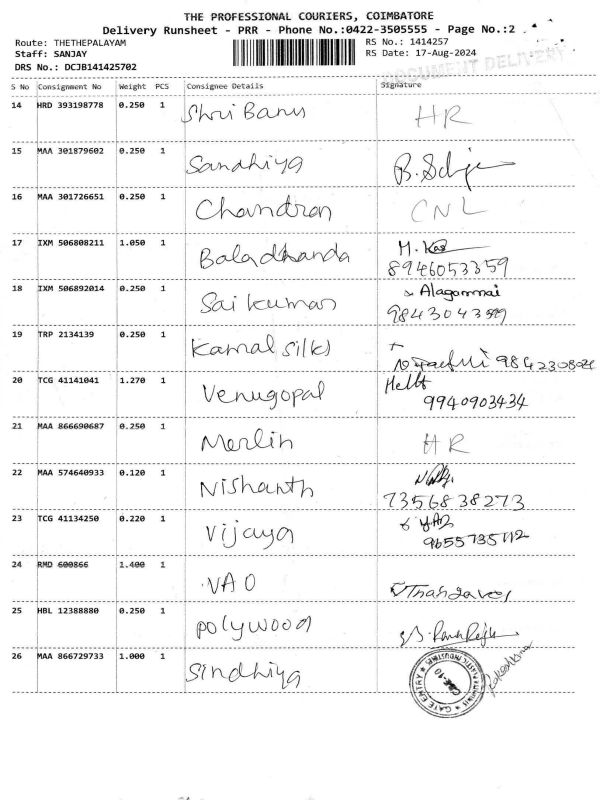 THE PROFESSIONAL COURIERS, COIMBATORE
Delivery Runsheet - PRR - Phone No.:0422-3505555 - Page No.:2
Route: THETHEPALAYAM
RS No.: 1414257
Staff: SANJAY
RS Date: 17-Aug-2024
DRS No.: DCJB141425702
DOCUMENT DELIVERY
S No Consignment No Weight PCS Consignee Details Signature
14 HRD 393198778 0.250 1 Shri Banu HR
15 MAA 301879602 0.250 1 Sandhiya
16 MAA 301726651 0.250 1 Chandran CNL
17 IXM 506808211 1.050 1 Baladhanda
8946053359
18 IXM 506892014 0.250 1 Sai kumar Alagammai
19 TRP 2134139 0.250 1 Kamal silks
20 TCG 41141041 1.270 1 Venugopal
9940903434
21 MAA 866690687 0.250 1 Merlin HR
22 MAA 574640933 0.120 1 Nishanth
7356838273
23 TCG 41134250 0.220 1 Vijaya
24 RMD 600866 1.400 1 VAO
25 HBL 12388880 0.250 1 polywood
26 MAA 866729733 1.000 1 Sindhiya
GATE ENTRY